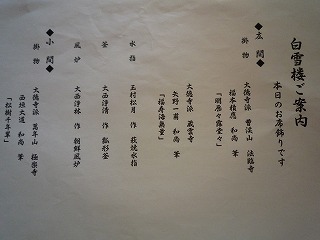 白雪楼ご案内
本日のお席飾りです
◆広間◆
掛物
大徳寺派 曹渓山 法雲寺
福本積應 和尚 筆
「明歴々露堂々」
大徳寺派 蔵雲寺
矢野一甫 和尚 筆
「福寿海無量」
水指
玉村松月 作 萩焼水指
釜
大西浄清 作 瓢形釜
風炉
大西浄林 作 朝鮮風炉
◆小間◆
掛物
大徳寺派 萬年山 極楽寺
西垣大道 和尚 筆
「松樹千年翠」